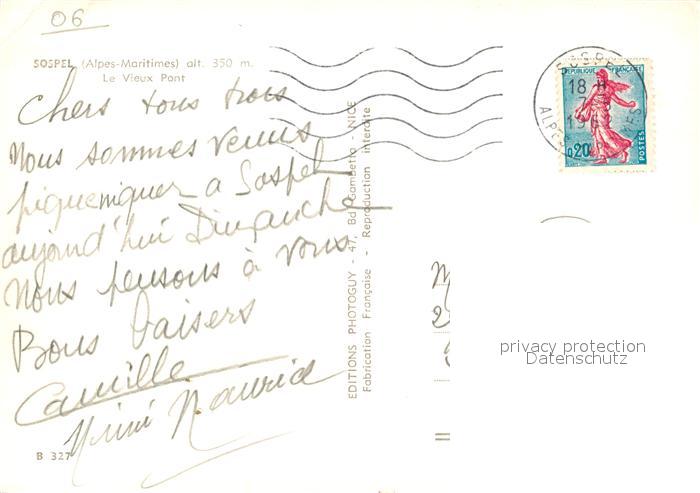 06
SOSPEL (Alpes-Maritimes) alt. 350 m.
Le Vieux Pont
Chers tous trois
Nous sommes venus
piqueniquer a Sospel
aujourd'hui Dimanche
Nous pensons à vous
Bons baisers
Camille
Mimi Maurice
B 327
EDITIONS PHOTOGUY - 47, Bd Gambetta - NICE
Fabrication Française - Reproduction interdite
SOSPEL
18 H
196
ALPES
REPUBLIQUE FRANÇAISE
0,20
POSTES
privacy protection
Datenschutz